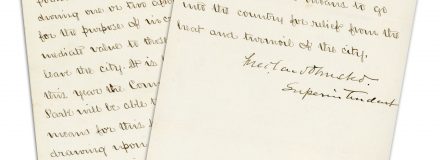 drawing one or two
for the purpose of
mediate value to those
leave the city. It is
this year the
Park will be able
means for this
drawing upon
means to go
into the country for relief from the
heat and turmoil of the city.
Fred. Law Olmsted.
Superintendent